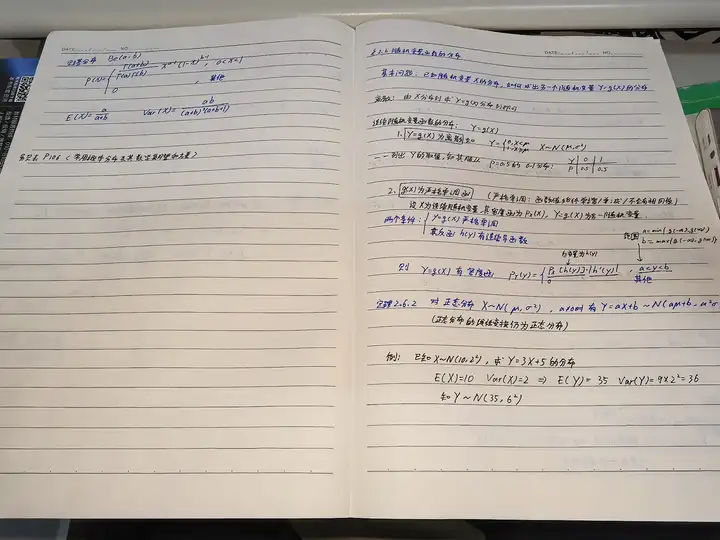 DATE NO
Be(a,b)
P(x)= { Γ(a+b) / Γ(a)Γ(b) x^(a-1) (1-x)^(b-1) , 0<x<1
0 , 其他
E(X)= a/(a+b) Var(X)= ab/((a+b)²(a+b+1))
P106 (常用概率分布及其数学期望和方差)
DATE NO
§2.6 随机变量函数的分布
基本问题: 已知随机变量X的分布, 如何求出另一个随机变量 Y=g(X) 的分布
离散: 由X分布列求Y=g(X)分布列即可
连续随机变量函数的分布: Y=g(X)
1. Y=g(X)为离散 如 Y={ 0, X<μ
1, X≥μ X~N(μ,σ²)
一一列出Y的取值, 知其服从 P=0.5的0-1分布: Y 0 1
P 0.5 0.5
2. g(X)为严格单调函 (严格单调:
设X为连续随机变量, 其密度函为Px(X), Y=g(X)为另一随机变量.
两个条件: { Y=g(X)严格单调
其反函h(y)有连续导函数
范围 { a=min{g(-∞),g(∞)}
b=max{g(-∞),g(∞)}
则 Y=g(X)有 Py(y)={ Px[h(y)]·|h'(y)| , a<y<b
0 其他
定理2.6.2 对正态分布 X~N(μ,σ²), a≠0时有 Y=aX+b ~N(aμ+b, a²σ
(正态分布的线性变换仍为正态分布)
例: 已知X~N(10,2²), 求Y=3X+5的分布
E(X)=10 Var(X)=2 ⇒ E(Y)=35 Var(Y)=9×2²=36
知 Y~N(35,6²)